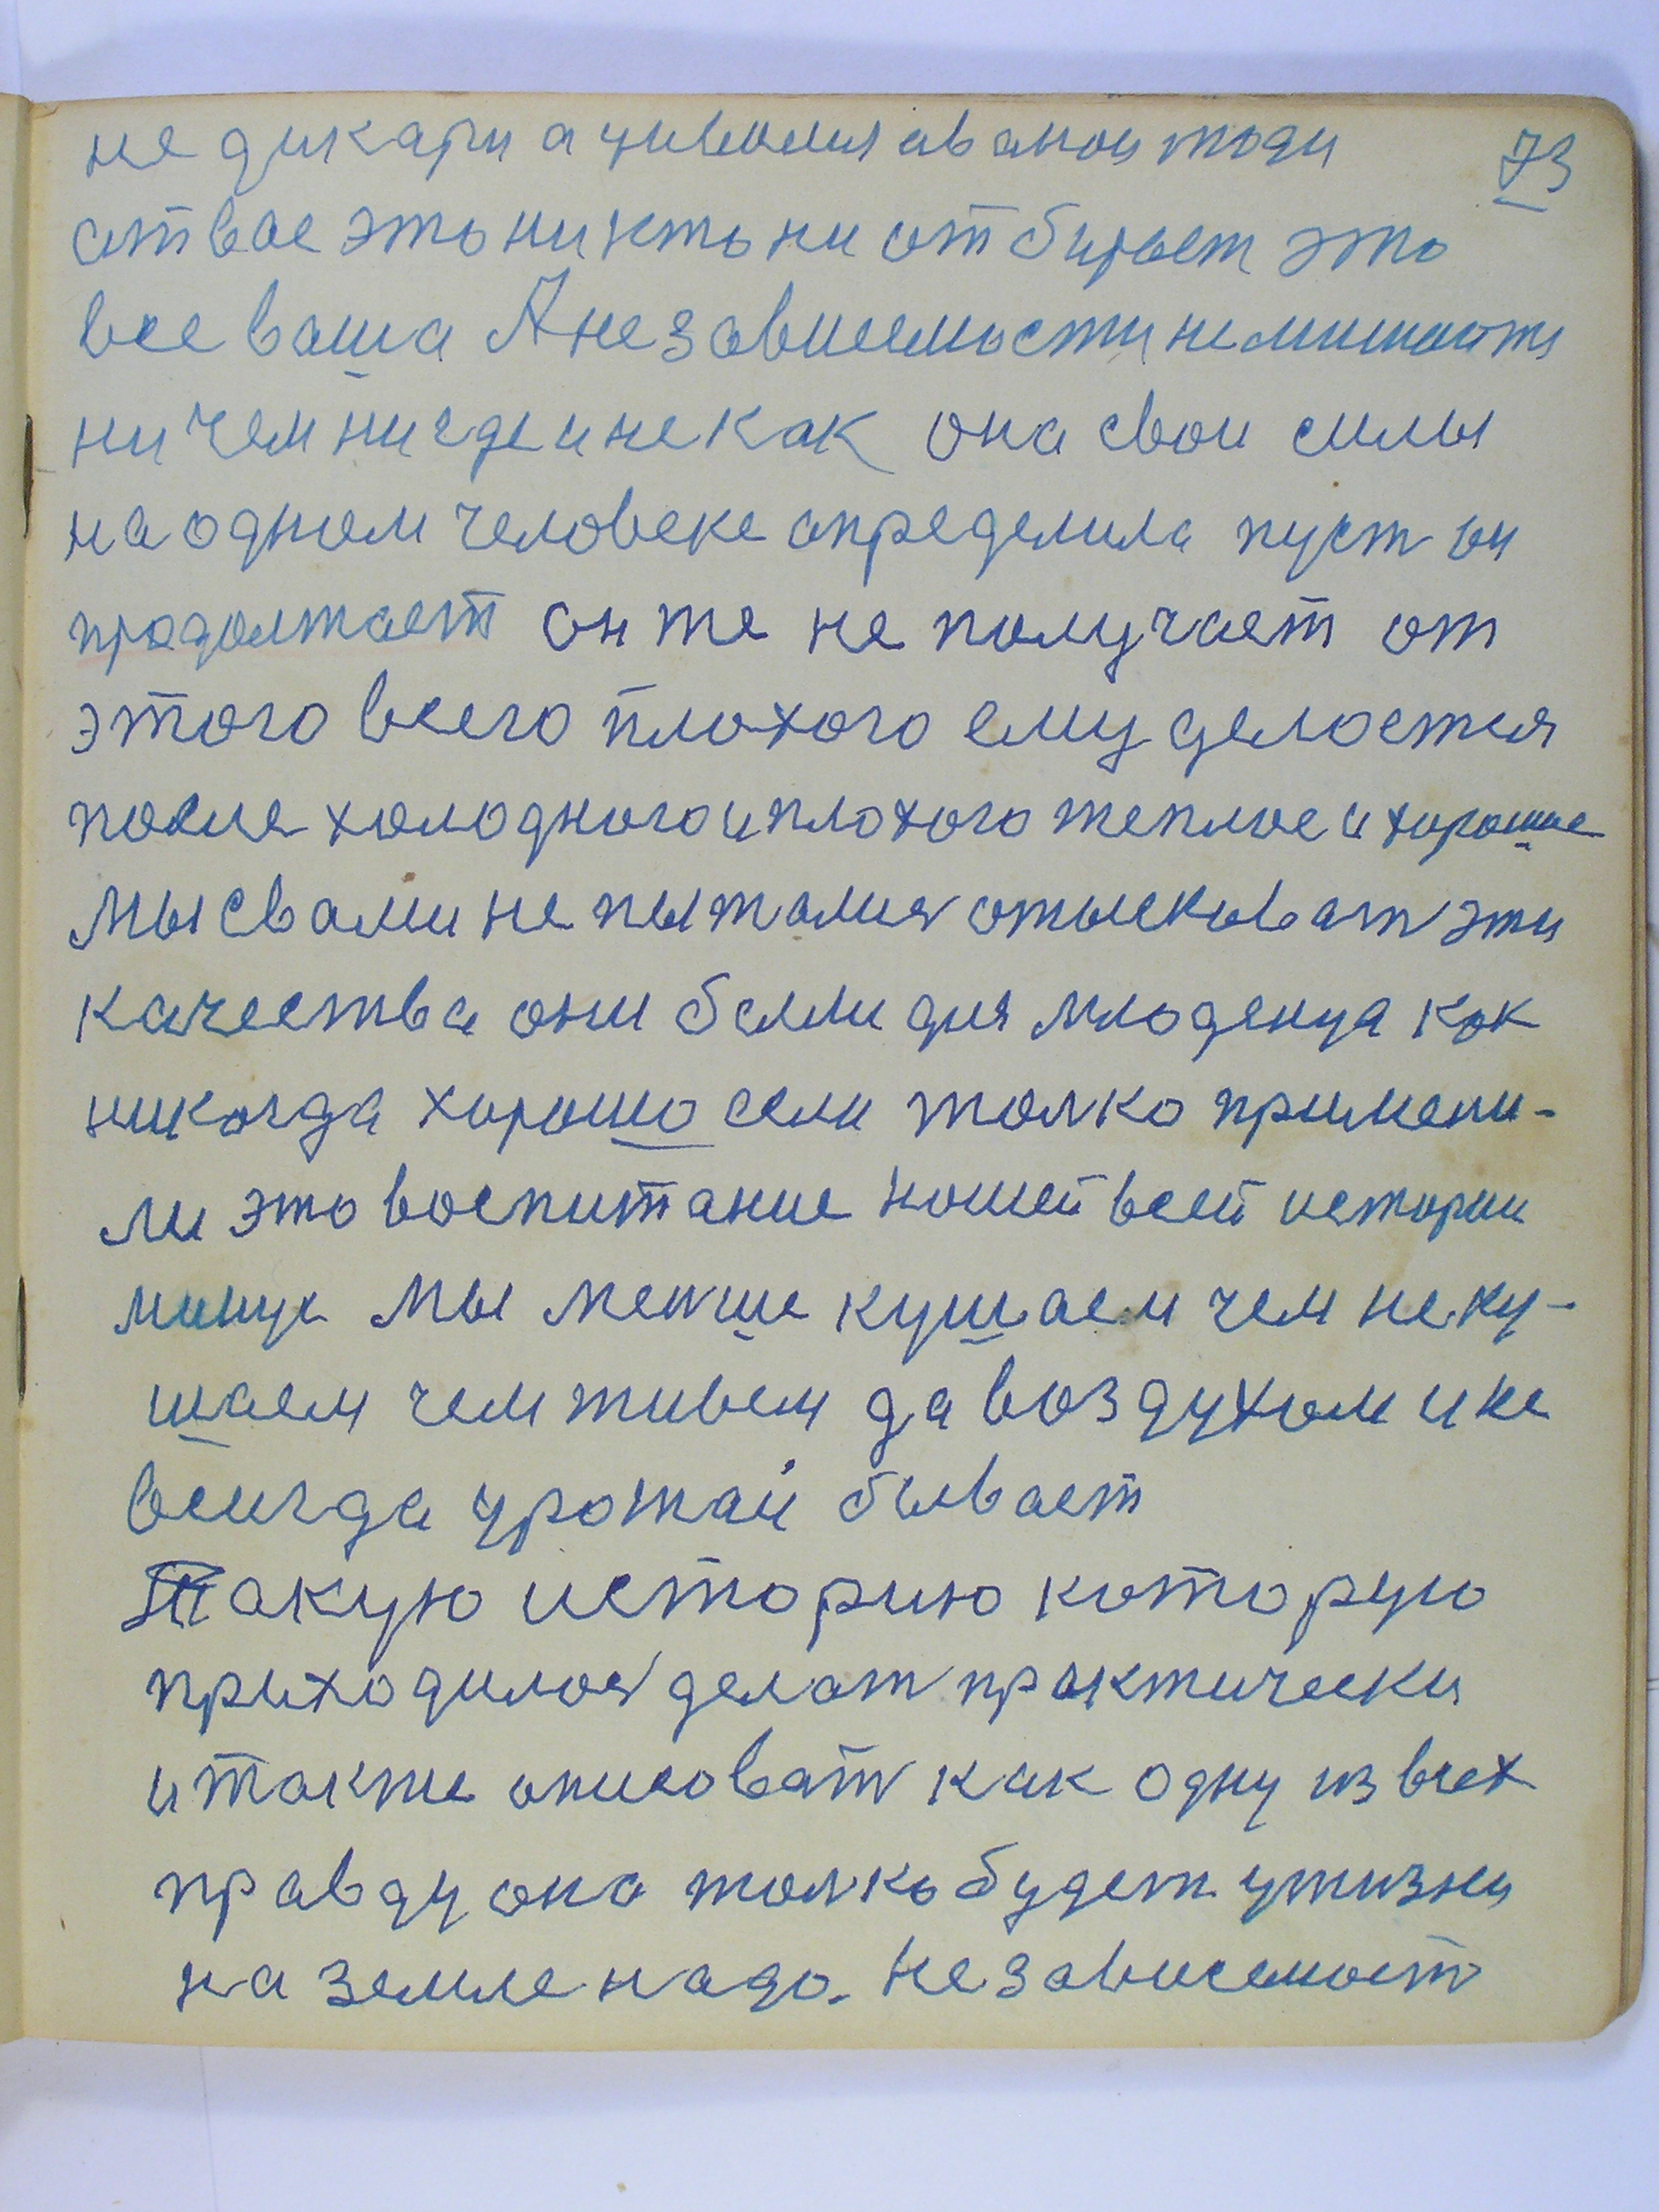 не дикари а цивилизаваной люди
73
ат вас это никто ни отбирает это
все ваша А независемости не мишайти
ни чем нигде и не как она свои силы
на одном человеке определила пуст он
продолжает он же не получает от
этого всего плохого ему делается
после холодного и плохого теплое и хорошие
Мы с вами не пытались отыскиват эти
качества они были для младенца как
никогда хорошо если толко примени-
ли это воспитание нашей всей истории
Мы менше кушаем чем не ку-
шаем чем живем да воздухом и не
всигда урожай бывает
Такую историю которую
приходилос делат практически
и также описоват как одну из всех
правду она толко будет у жизни
на земле надо. Независемост